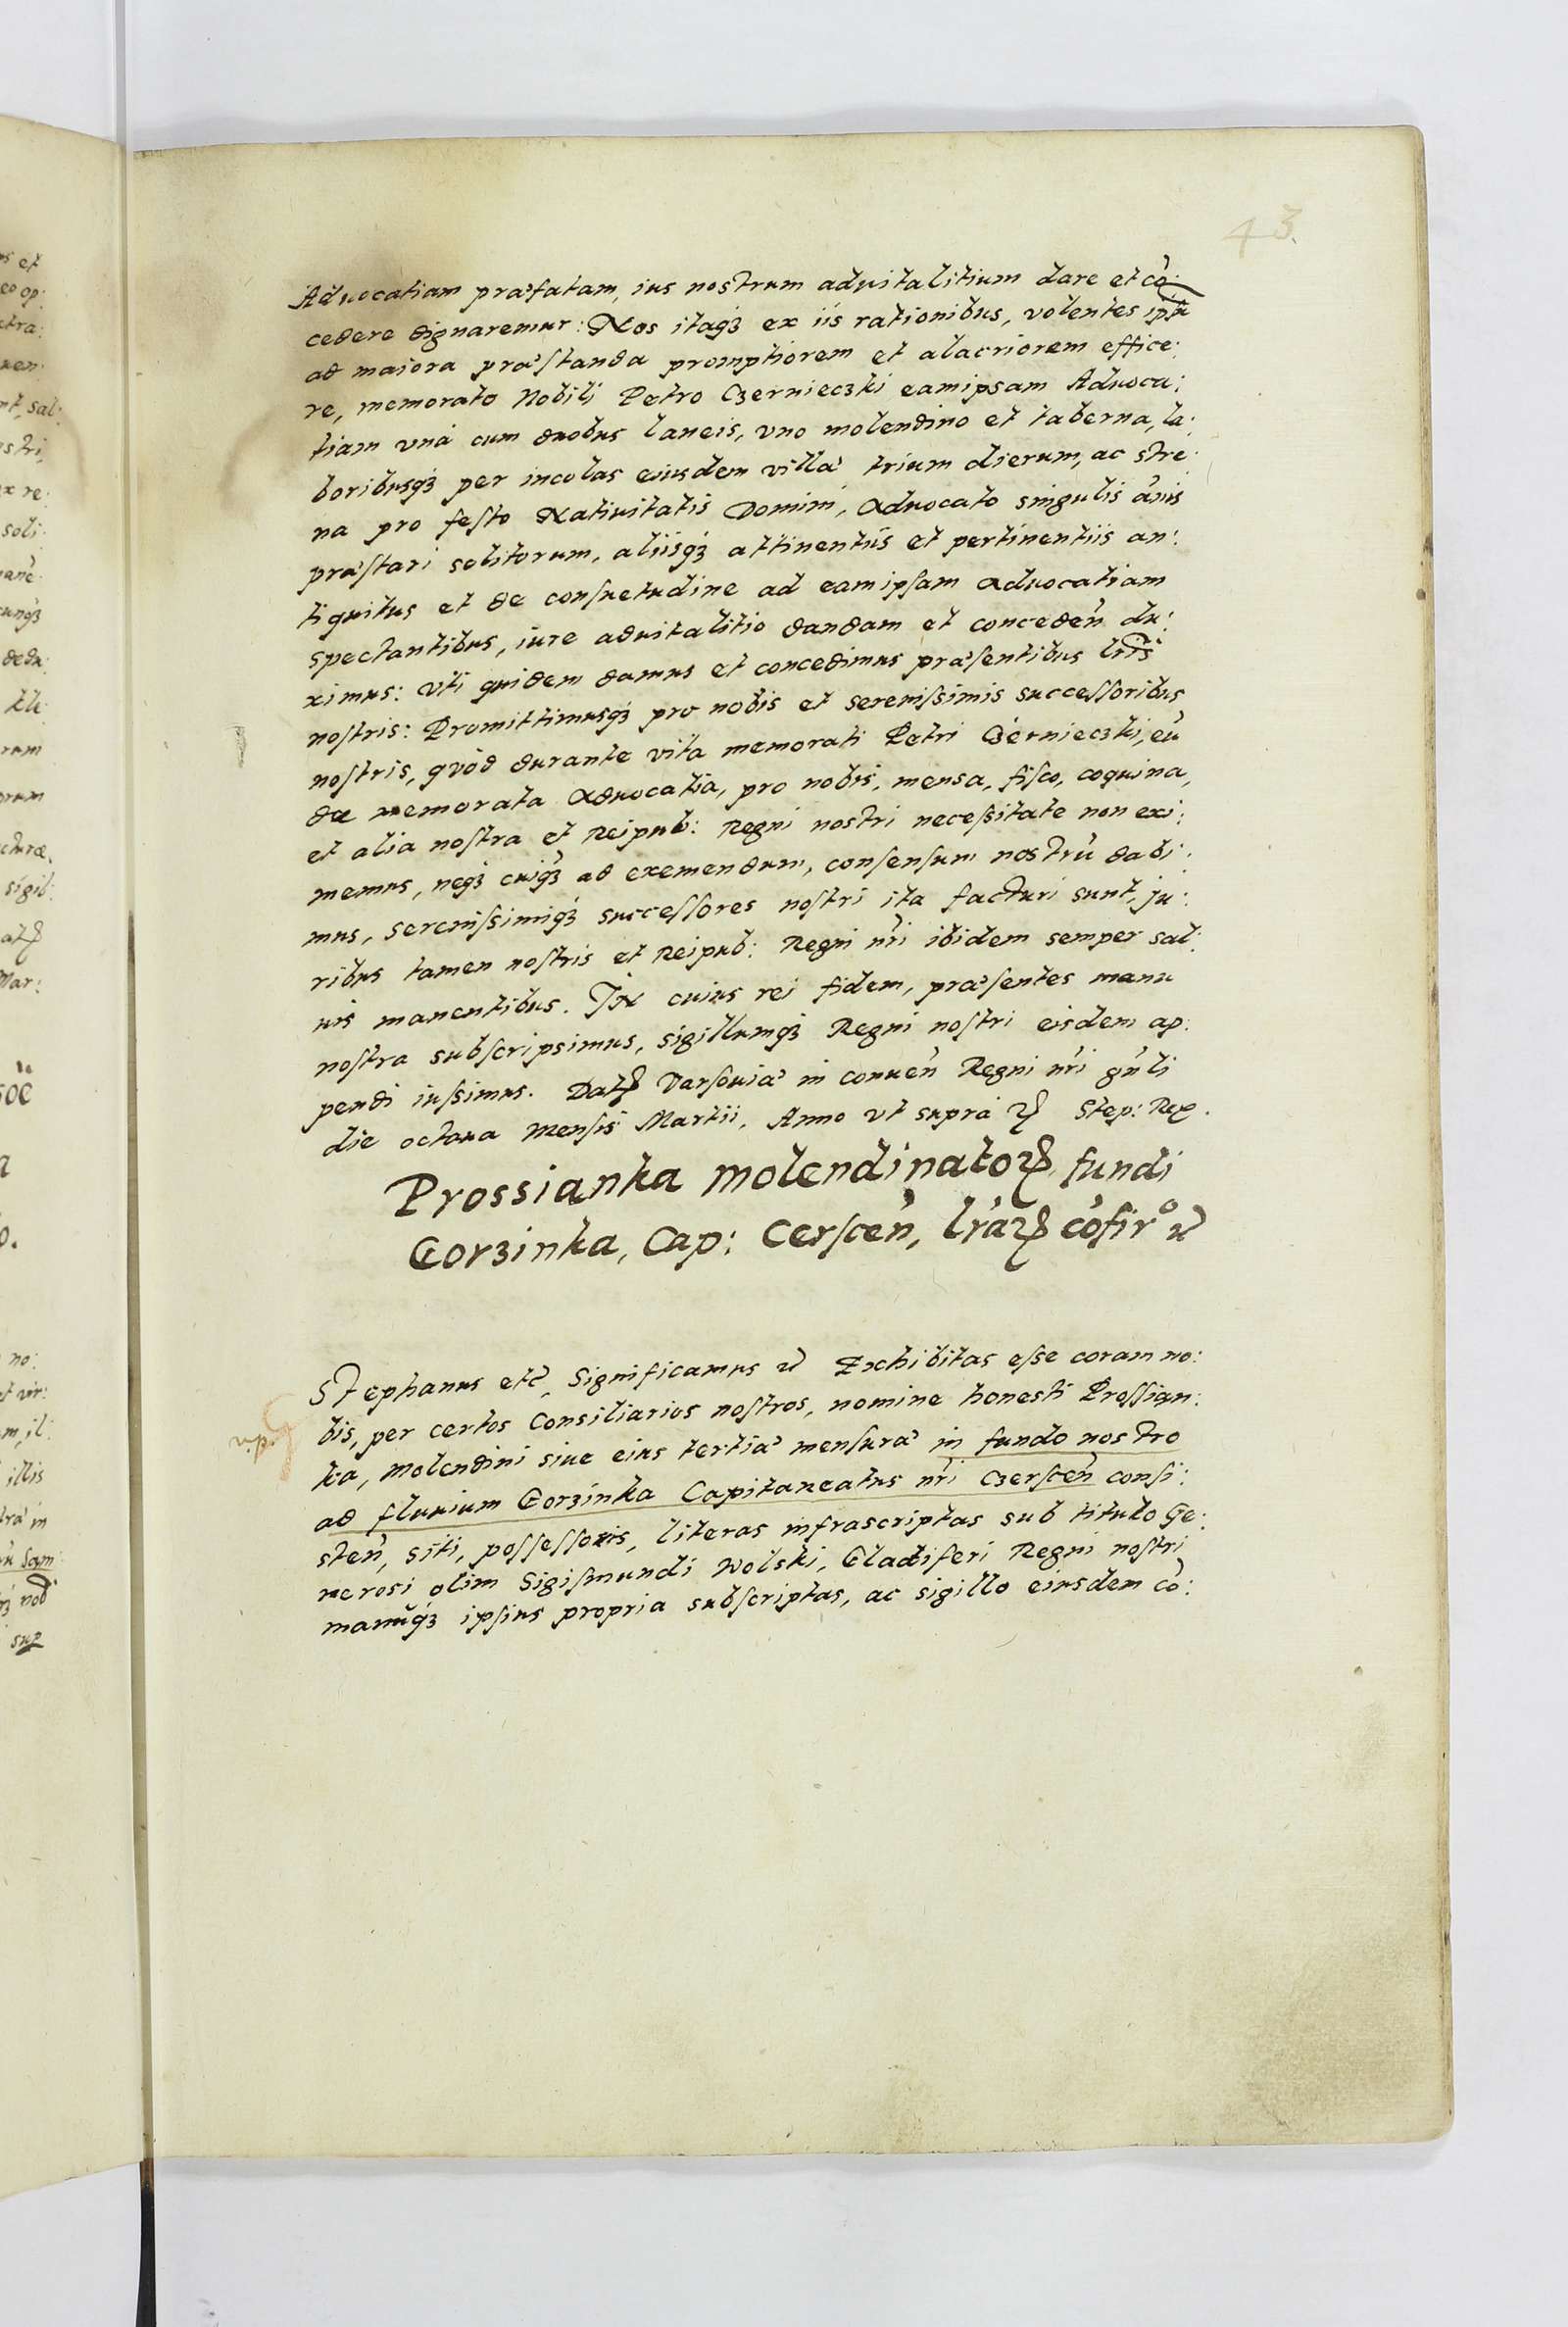 43.
Aduocatiam præfatam, ius nostrum aduitalitium dare et cõ
cedere dignaremur: Nos itaqȝ ex iis rationibus, volentes ipm̃
ad maiora præstanda promptiorem et alacriorem effice:
re, memorato Nobili Petro Czernieczki eamipsam Aduoca:
tiam vnà cum duobus laneis, vno molendino et taberna, la:
boribusqȝ per incolas eiusdem villæ trium dierum, ac stre
na pro festo Natiuitatis Domini, Aduocato singulis ãnis
præstari solitorum, aliisqȝ attinentiis et pertinentiis an:
tiquitus et de consuetudine ad eamipsam Aduocatiam
spectantibus, iure aduitalitio dandam et conceden̄ du:
ximus: Vti quidem damus et concedimus præsentibus lr̃is
nostris: Promittimusqȝ pro nobis et serenissimis successoribus
nostris, quòd durante vita memorati Petri Czernieczki, eũ
de memorata Aduocatia, pro nobis, mensa, fisco, coquina,
et alia nostra et Reipub: Regni nostri necessitate non exi:
memus, neqȝ cuiqȝ ad exemendum, consensum nostrũ dabi:
mus, serenissimiqȝ successores nostri ita facturi sunt, ju:
ribus tamen nostris et Reipub: Regni nr̃i ibidem semper sal:
uis manentibus. In cuius rei fidem, præsentes manu
nostra subscripsimus, sigillumqȝ Regni nostri eisdem ap:
pendi iussimus. Datꝝ Varsouiæ in conuen̄ Regni nr̃i gn̄li
die octaua Mensis Martii, Anno vt supra ꝝ Step: Rex.
Prossianka molendinatoꝝ fundi
Gorzinka, Cap: Cerscen̄, lr̃aꝝ cõfirᵒ
Stephanus etc̃, Significamus Exhibitas esse coram no:
bis, per certos Consiliarios nostros, nomine honesti Prossian:
ka, Molendini siue eius tertiæ mensuræ in fundo nostro
ad fluuium Gorzinka Capitaneatus nr̃i Czerscen̄ consi:
sten̄, siti, possessoris, literas infrascriptas sub titulo Ge:
nerosi olim Sigismundi Wolski, Gladiferi Regni nostri
manuqȝ ipsius propria subscriptas, ac sigillo eiusdem cõ: